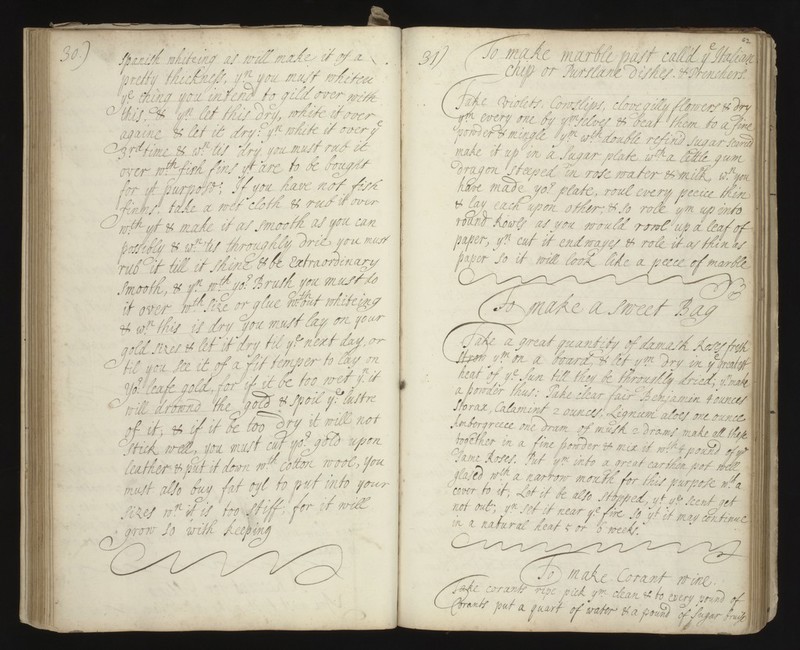 30.)
Spanish whiteing as will make it of a
pretty thickness, yn you must whiten
ye thing you intend to gild over with
this, & yn let this dry, white it over
againe & let it dry: yn white it over ye
3rd time & wn tis dry you must rub it
over wth fish fins yt are to be bought
for yt purpose: If you have not fish
finns: take a wet cloth & rub it over
wth yt & make it as smooth as you can
possibly & wn tis throughly drie you must
rub it till it shine & be Extraordinary
smooth, & yn wth yor Brush you must do
it over wth size or glue wthout whiteing
& wn this is dry you must lay on your
gold sizes & let it dry til ye next day, or
til you see it of a fit temper to lay on
Yor leafe gold, for if it be too wet yn it
will drownd the gold & spoil ye lustre
of it, & if it be too dry it will not
stick well, you must cut yor gold upon
leather & put it down wth Cotton wool, you
must also buy fat oyl to put into your
sizes wn it is too stiff: for it will
grow so with keeping
52
31)
To make marble past call'd ye Italian
Chip or Purslane dishes. & Trenchers
Take Violets. Cowslips, clovegilly flowers & dry
ym every one by ymselves & beat them to a fine
powder & mingle ym wth double refin'd sugar searced
make it up in a sugar plate wth a little gum
dragon steeped in rose water & milk, wn you
have made yor plate, roul every peece thin
& lay each upon other: & so role ym up into
round Rowls as you would rowl up a leaf of
paper, yn cut it endwayes & role it as thin as
paper so it will look like a peece of marble
To make a sweet Bag
Take a great quantity of damask Roses fresh
strow ym on a board & let ym dry in ye great
heat of ye Sun till they be throughly dried: yn make
a powder thus: Take clear fair Benjamin 4 ounces
Storax, Calamint 2 ounces. Lignum aloes one ounce
Ambergreece one dram of musk 2 drams make all these
together in a fine powder & mix it wth 4 pound of ye
same Roses. Put ym into a great earthen pot well
glased wth a narrow mouth for this purpose wth a
cover to it, Let it be also stopped, yt ye scent get
not out, yn set it near ye fire so yt it may continue
in a natural heat 5 or 6 weeks.
To make Corant wine.
Take corants ripe pick ym clean & to every pound of
Corants put a quart of water & a pound of sugar